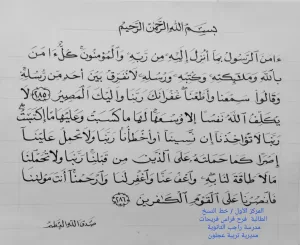 بسم الله الرحمن الرحيم
ءامن الرسول بما أنزل إليه من ربه والمؤمنون كل ءامن
بالله وملائكته وكتبه ورسله لا نفرق بين أحد من رسله
وقالوا سمعنا وأطعنا غفرانك ربنا وإليك المصير ٢٨٥
لا يكلف الله نفسا إلا وسعها لها ما كسبت وعليها ما اكتسبت
ربنا لا تؤاخذنا إن نسينا أو أخطأنا ربنا ولا تحمل علينا
إصرا كما حملته على الذين من قبلنا ربنا ولا تحملنا
ما لا طاقة لنا به واعف عنا واغفر لنا وارحمنا أنت مولانا
فانصرنا على القوم الكافرين ٢٨٦
صدق الله العظيم
المركز الأول / خط النسخ
الطالبة فرح فراس فريحات
مدرسة راجب الثانوية
مديرية تربية عجلون